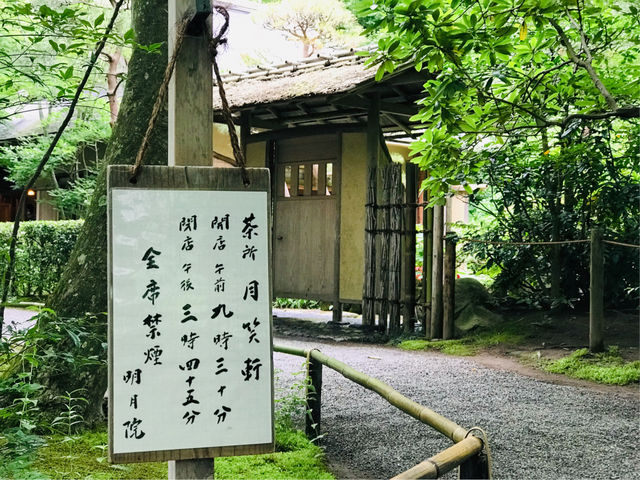 茶所 月笑軒
開店 午前 九時三十分
閉店 午後 三時四十五分
全席禁煙
明月院